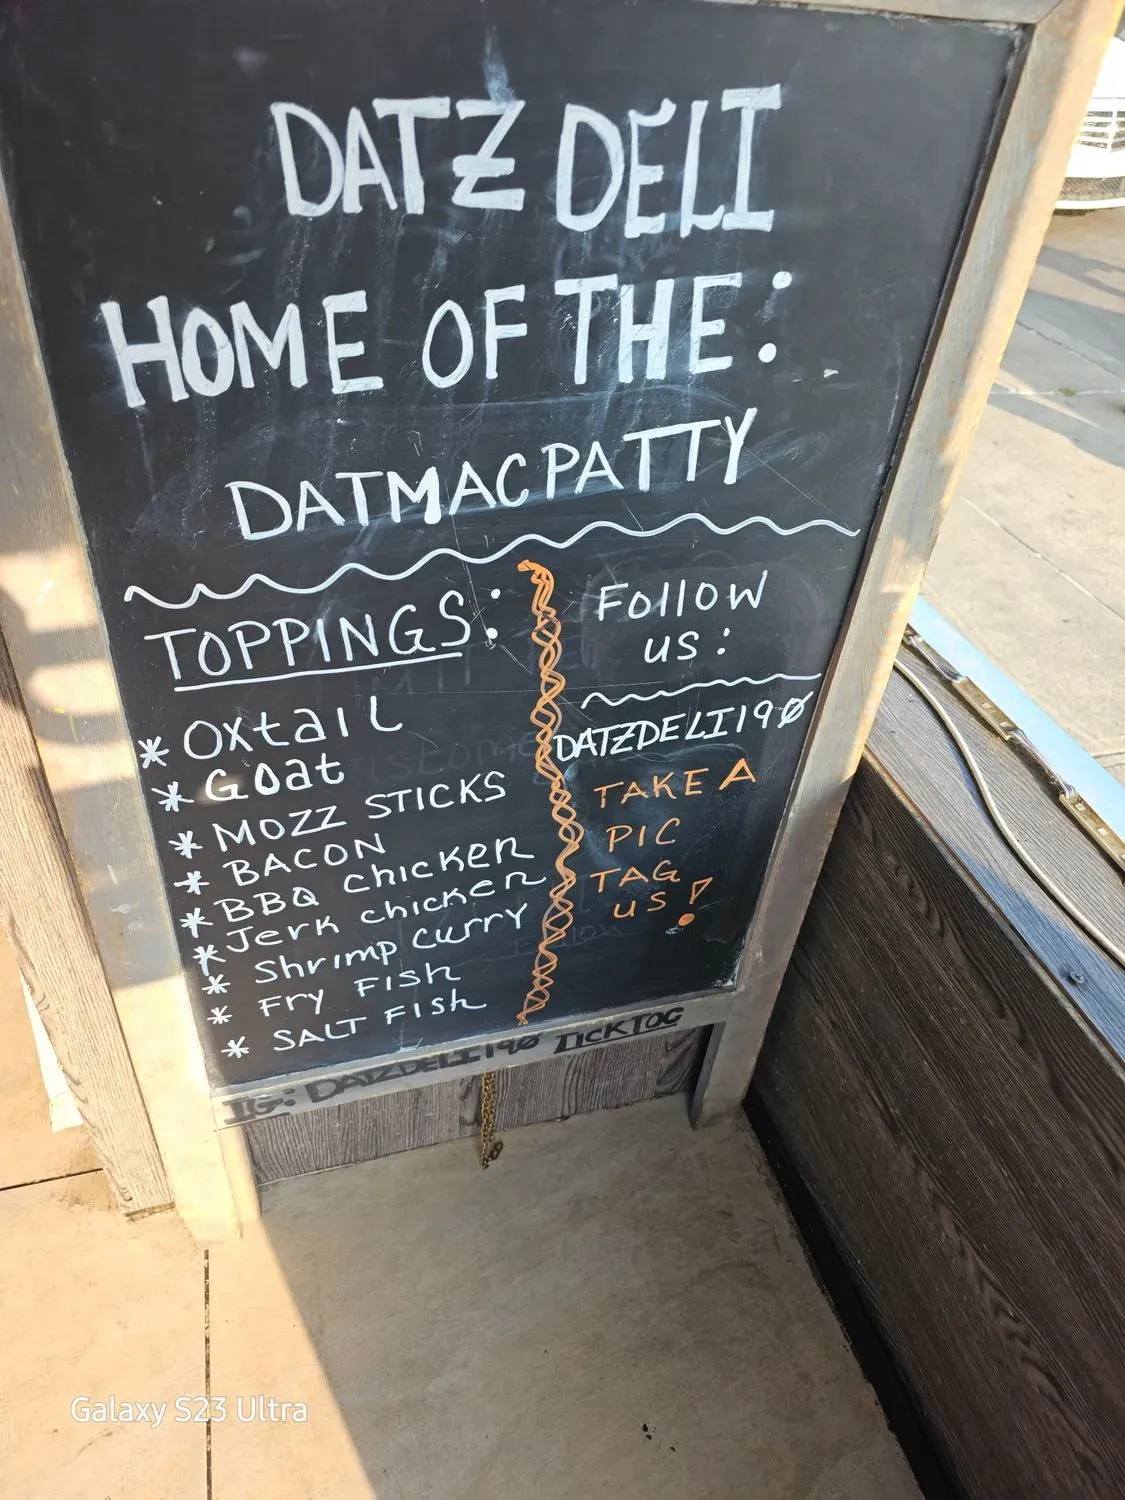 DATZ DELI
HOME OF THE:
DATMACPATTY
TOPPINGS:
* Oxtail
* Goat
* MOZZ STICKS
* BACON
* BBQ chicken
* Jerk chicken
* Shrimp curry
* Fry Fish
* SALT Fish
Follow
us:
DATZDELI190
TAKE A
PIC
TAG
us!
IG: DATZDELI190 TICKTOC
Galaxy S23 Ultra